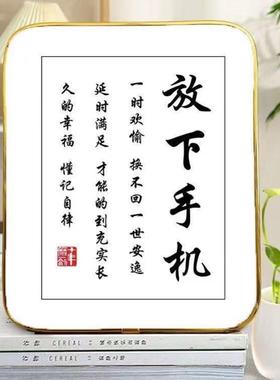 放下手机
一时欢愉 换不回一世安逸
延时满足 才能的到充实长
久的幸福 懂记自律
CEREAL